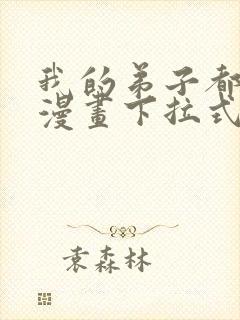 我的弟子都
漫畫下拉式
袁森林